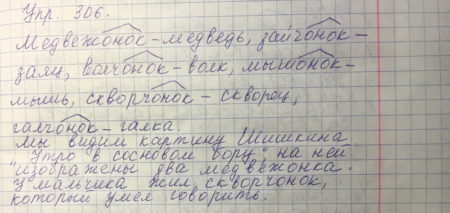 Упр. 306.
Медвежонок-медведь, зайчонок-
заяц, волчонок-волк, мышонок-
мышь, скворчонок-скворец,
галчонок-галка.
Мы видим картину Шишкина
"Утро в сосновом бору", на ней
изображены два медвежонка.
У мальчика жил скворчонок,
который умел говорить.